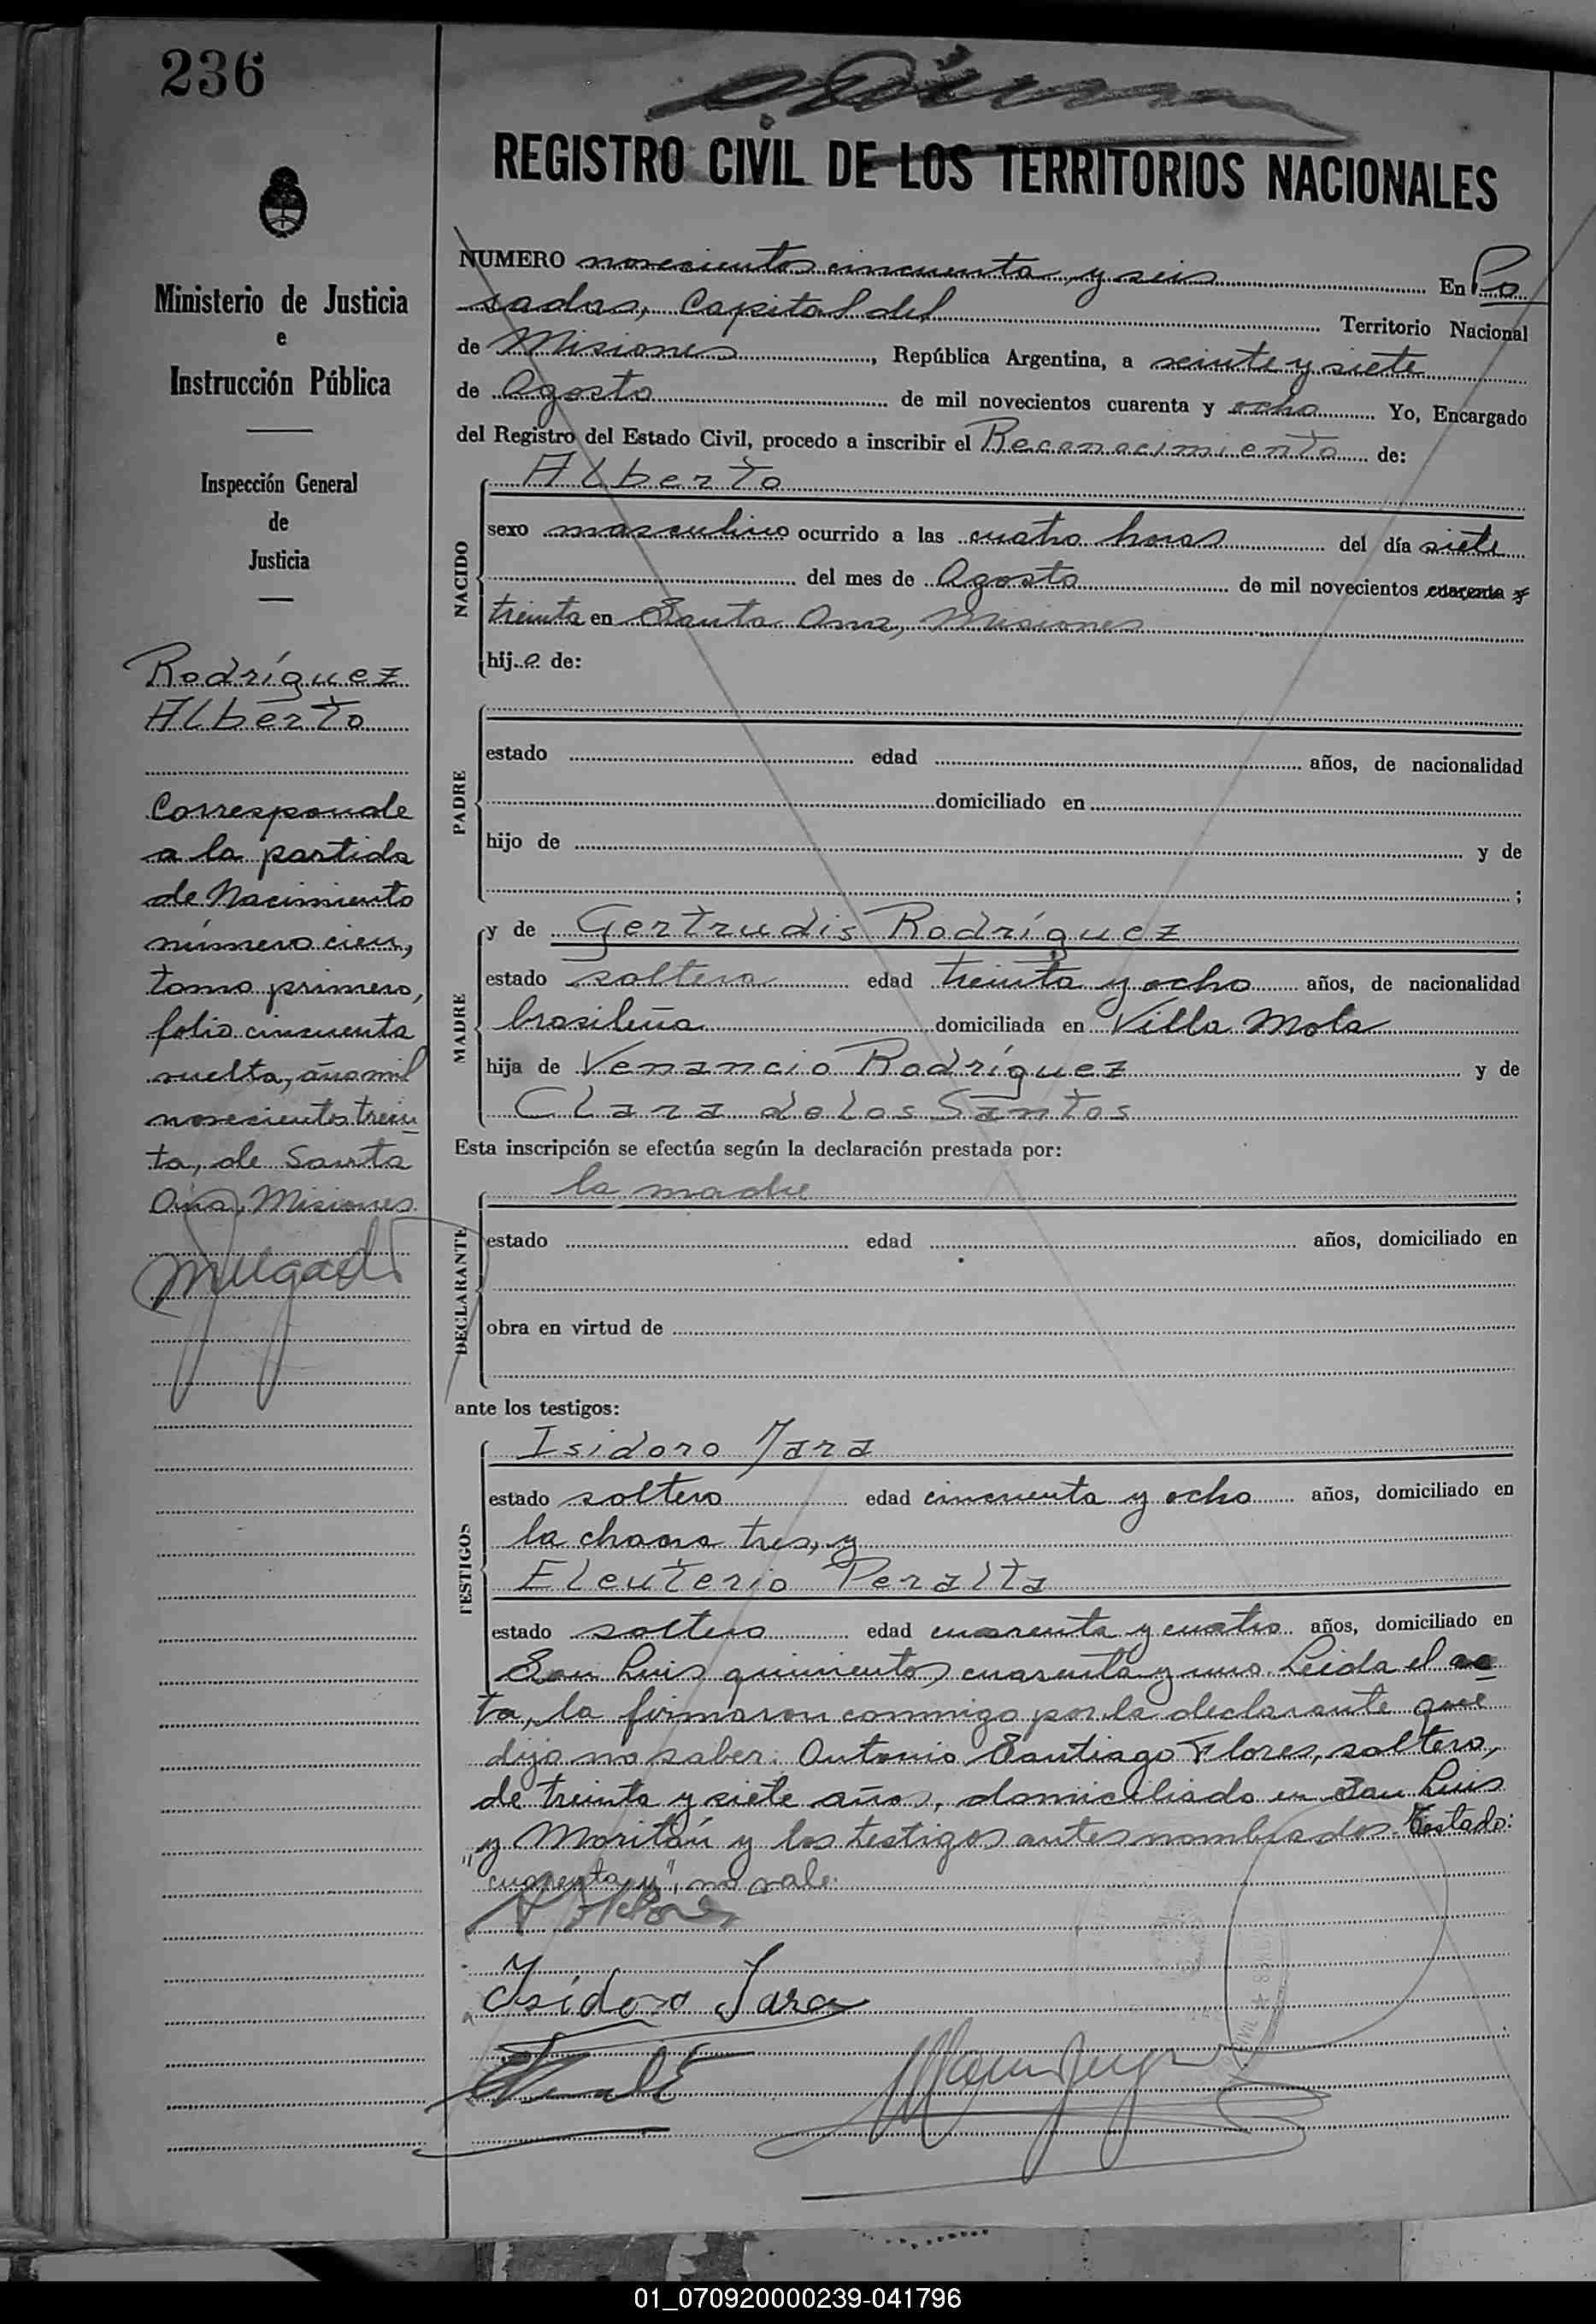 236
REGISTRO CIVIL DE LOS TERRITORIOS NACIONALES
Ministerio de Justicia
e
Instrucción Pública
Inspección General
de
Justicia
Rodríguez
Alberto
Corresponde
a la partida
de Nacimiento
número cien,
tomo primero,
folio cincuenta
vuelta, año mil
novecientos trein
ta, de Santa
Ana, Misiones
NUMERO novecientos cincuenta y seis En Po
sadas, Capital del Territorio Nacional
de Misiones, República Argentina, a veinte y siete
de Agosto de mil novecientos cuarenta y ocho Yo, Encargado
del Registro del Estado Civil, procedo a inscribir el Reconocimiento de:
NACIDO
Alberto
sexo masculino ocurrido a las cuatro horas del día siete
del mes de Agosto de mil novecientos cuarenta y
treinta en Santa Ana, Misiones
hijo de:
PADRE
estado edad años, de nacionalidad
domiciliado en
hijo de y de
;
MADRE
y de Gertrudis Rodríguez
estado soltera edad treinta y ocho años, de nacionalidad
brasileña domiciliada en Villa Mola
hija de Venancio Rodríguez y de
Clara de los Santos
Esta inscripción se efectúa según la declaración prestada por:
DECLARANTE
la madre
estado edad años, domiciliado en
obra en virtud de
ante los testigos:
TESTIGOS
Isidoro Jara
estado soltero edad cincuenta y ocho años, domiciliado en
la chacra tres, y
Eleuterio Peralta
estado soltero edad cuarenta y cuatro años, domiciliado en
San Luis quinientos cuarenta y uno. Leida el ac
ta, la firmaron conmigo por la declarante que
dijo no saber: Antonio Santiago Flores, soltero,
de treinta y siete años, domiciliado en San Luis
y Moritán y los testigos antes nombrados. Testado:
"cuarenta y", no vale.
Isidoro Jara
01_070920000239-041796